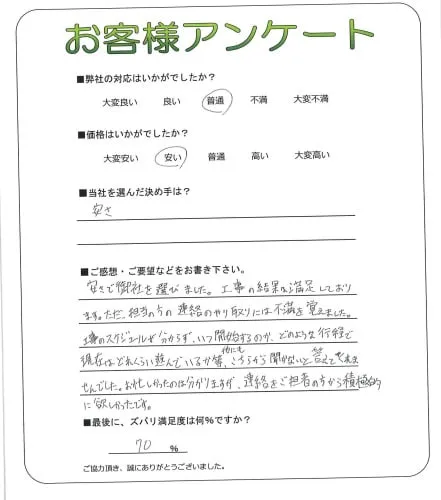 お客様アンケート
■弊社の対応はいかがでしたか？
大変良い 良い 普通 不満 大変不満
■価格はいかがでしたか？
大変安い 安い 普通 高い 大変高い
■当社を選んだ決め手は？
安さ
■ご感想・ご要望などをお書き下さい。
安さで御社を選びました。工事の結果は満足しており
ます。ただ、担当の方の連絡のやり取りには不満を覚えました。
工事のスケジュールが分からず、いつ開始するのか、どのような行程で
現在はどれくらい進んでいるか等、他にもこちらから聞かないと答えてくれま
せんでした。お忙しかったのは分かりますが、連絡をご担当の方から積極的
に欲しかったです。
■最後に、ズバリ満足度は何％ですか？
70 ％
ご協力頂き、誠にありがとうございました。